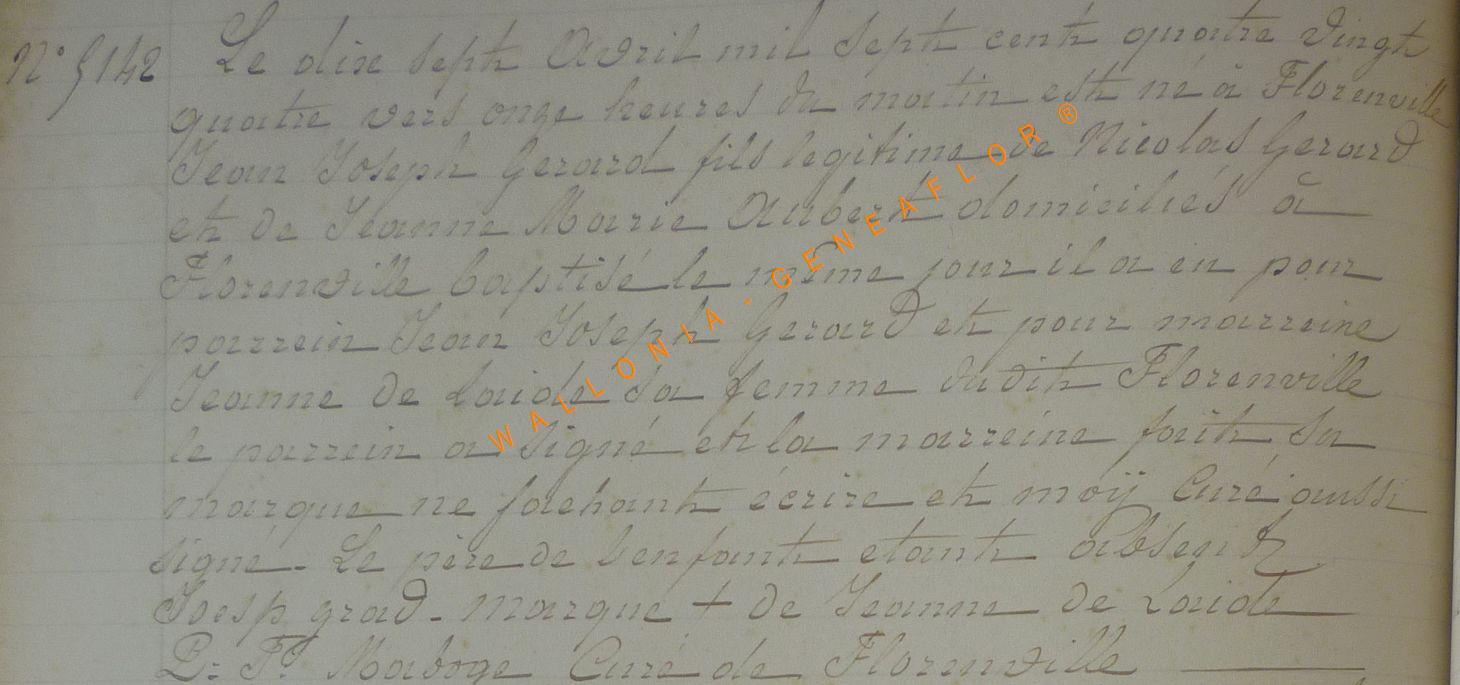 N° 5142 Le dix sept Avril mil sept cent quatre vingt
quatre vers onze heures du matin est né à Florenville
Jean Joseph Gerard fils legitime de Nicolas Gerard
et de Jeanne Marie Aubert domiciliés à
Florenville baptisé le même jour il a eu pour
parrein Jean Joseph Gerard et pour marreine
Jeanne de Laide sa femme dudit Florenville
le parrein a signé et la marreine fait sa
marque ne sachant écrire et moÿ Curé aussi
signé. Le père de l'enfant etant absent
Joesp grad. marque + de Jeanne de Laide
P. Fs Maboge Curé de Florenville
WALLONIA - GENEAFLOR ®